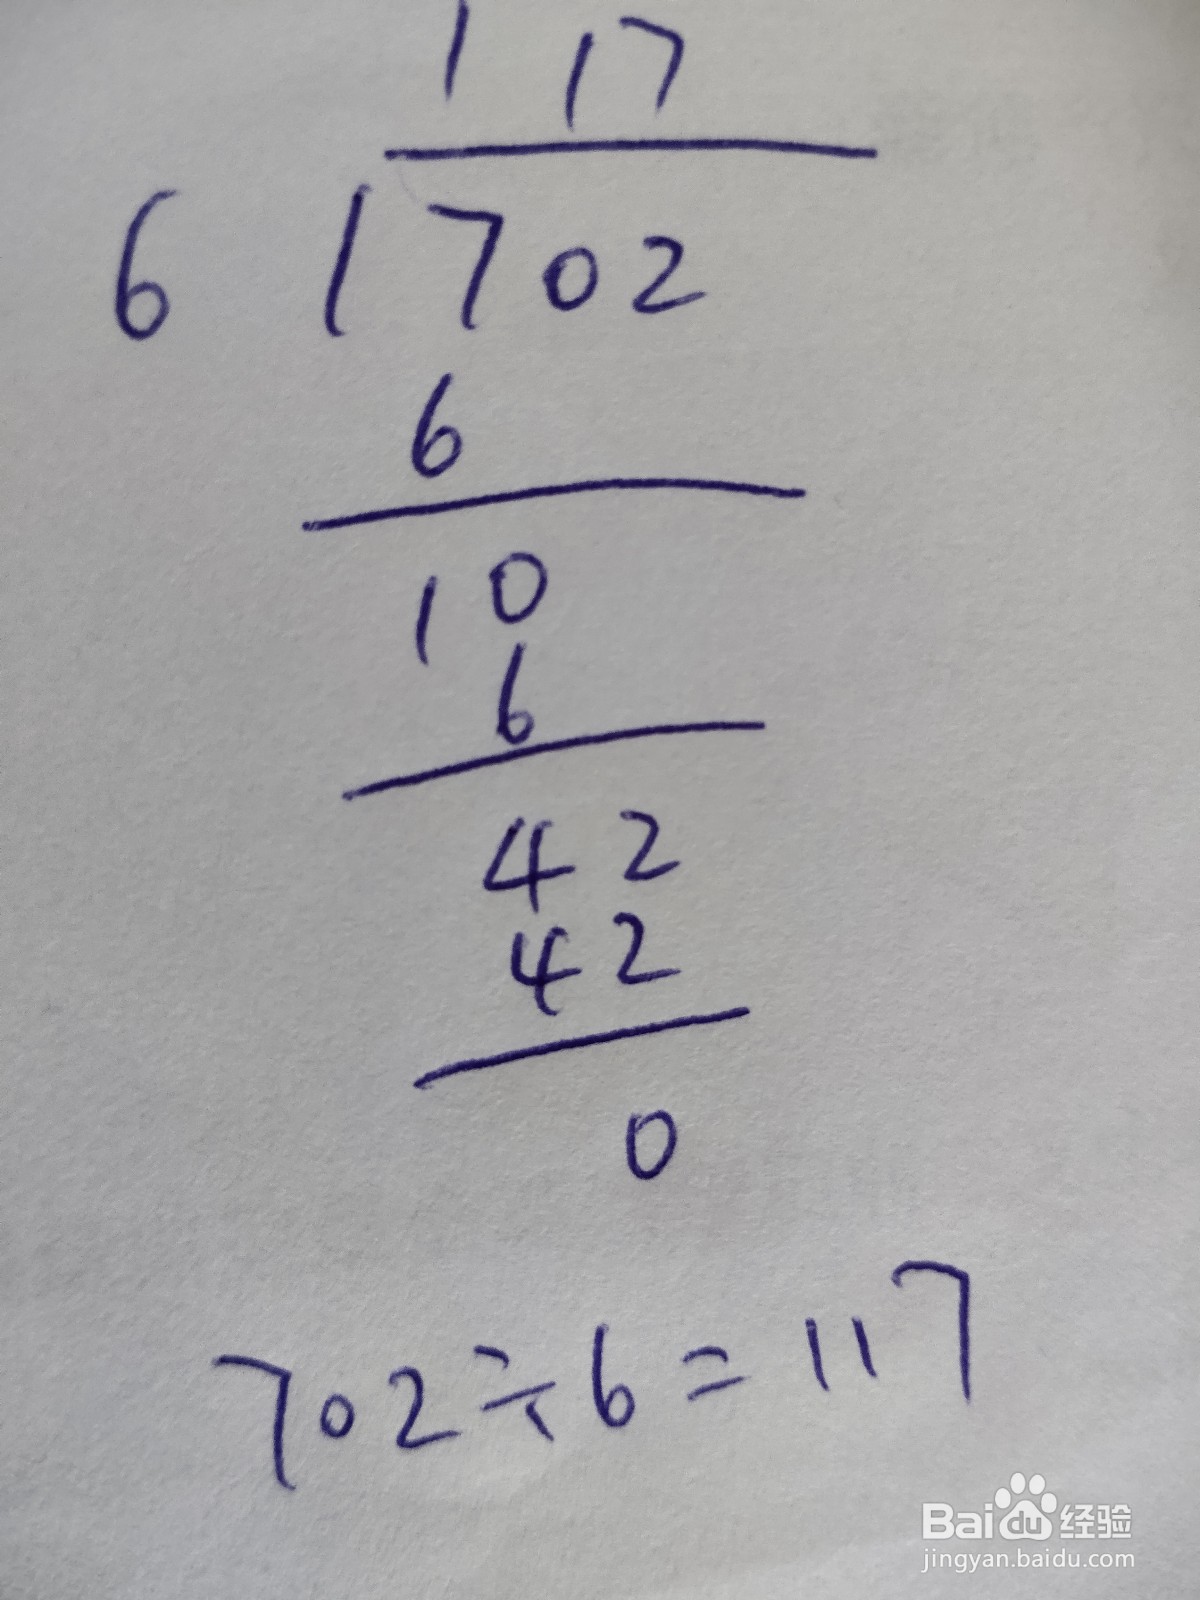 117
6 702
6
10
6
42
42
0
702÷6=117
Baidu经验
jingyan.baidu.com